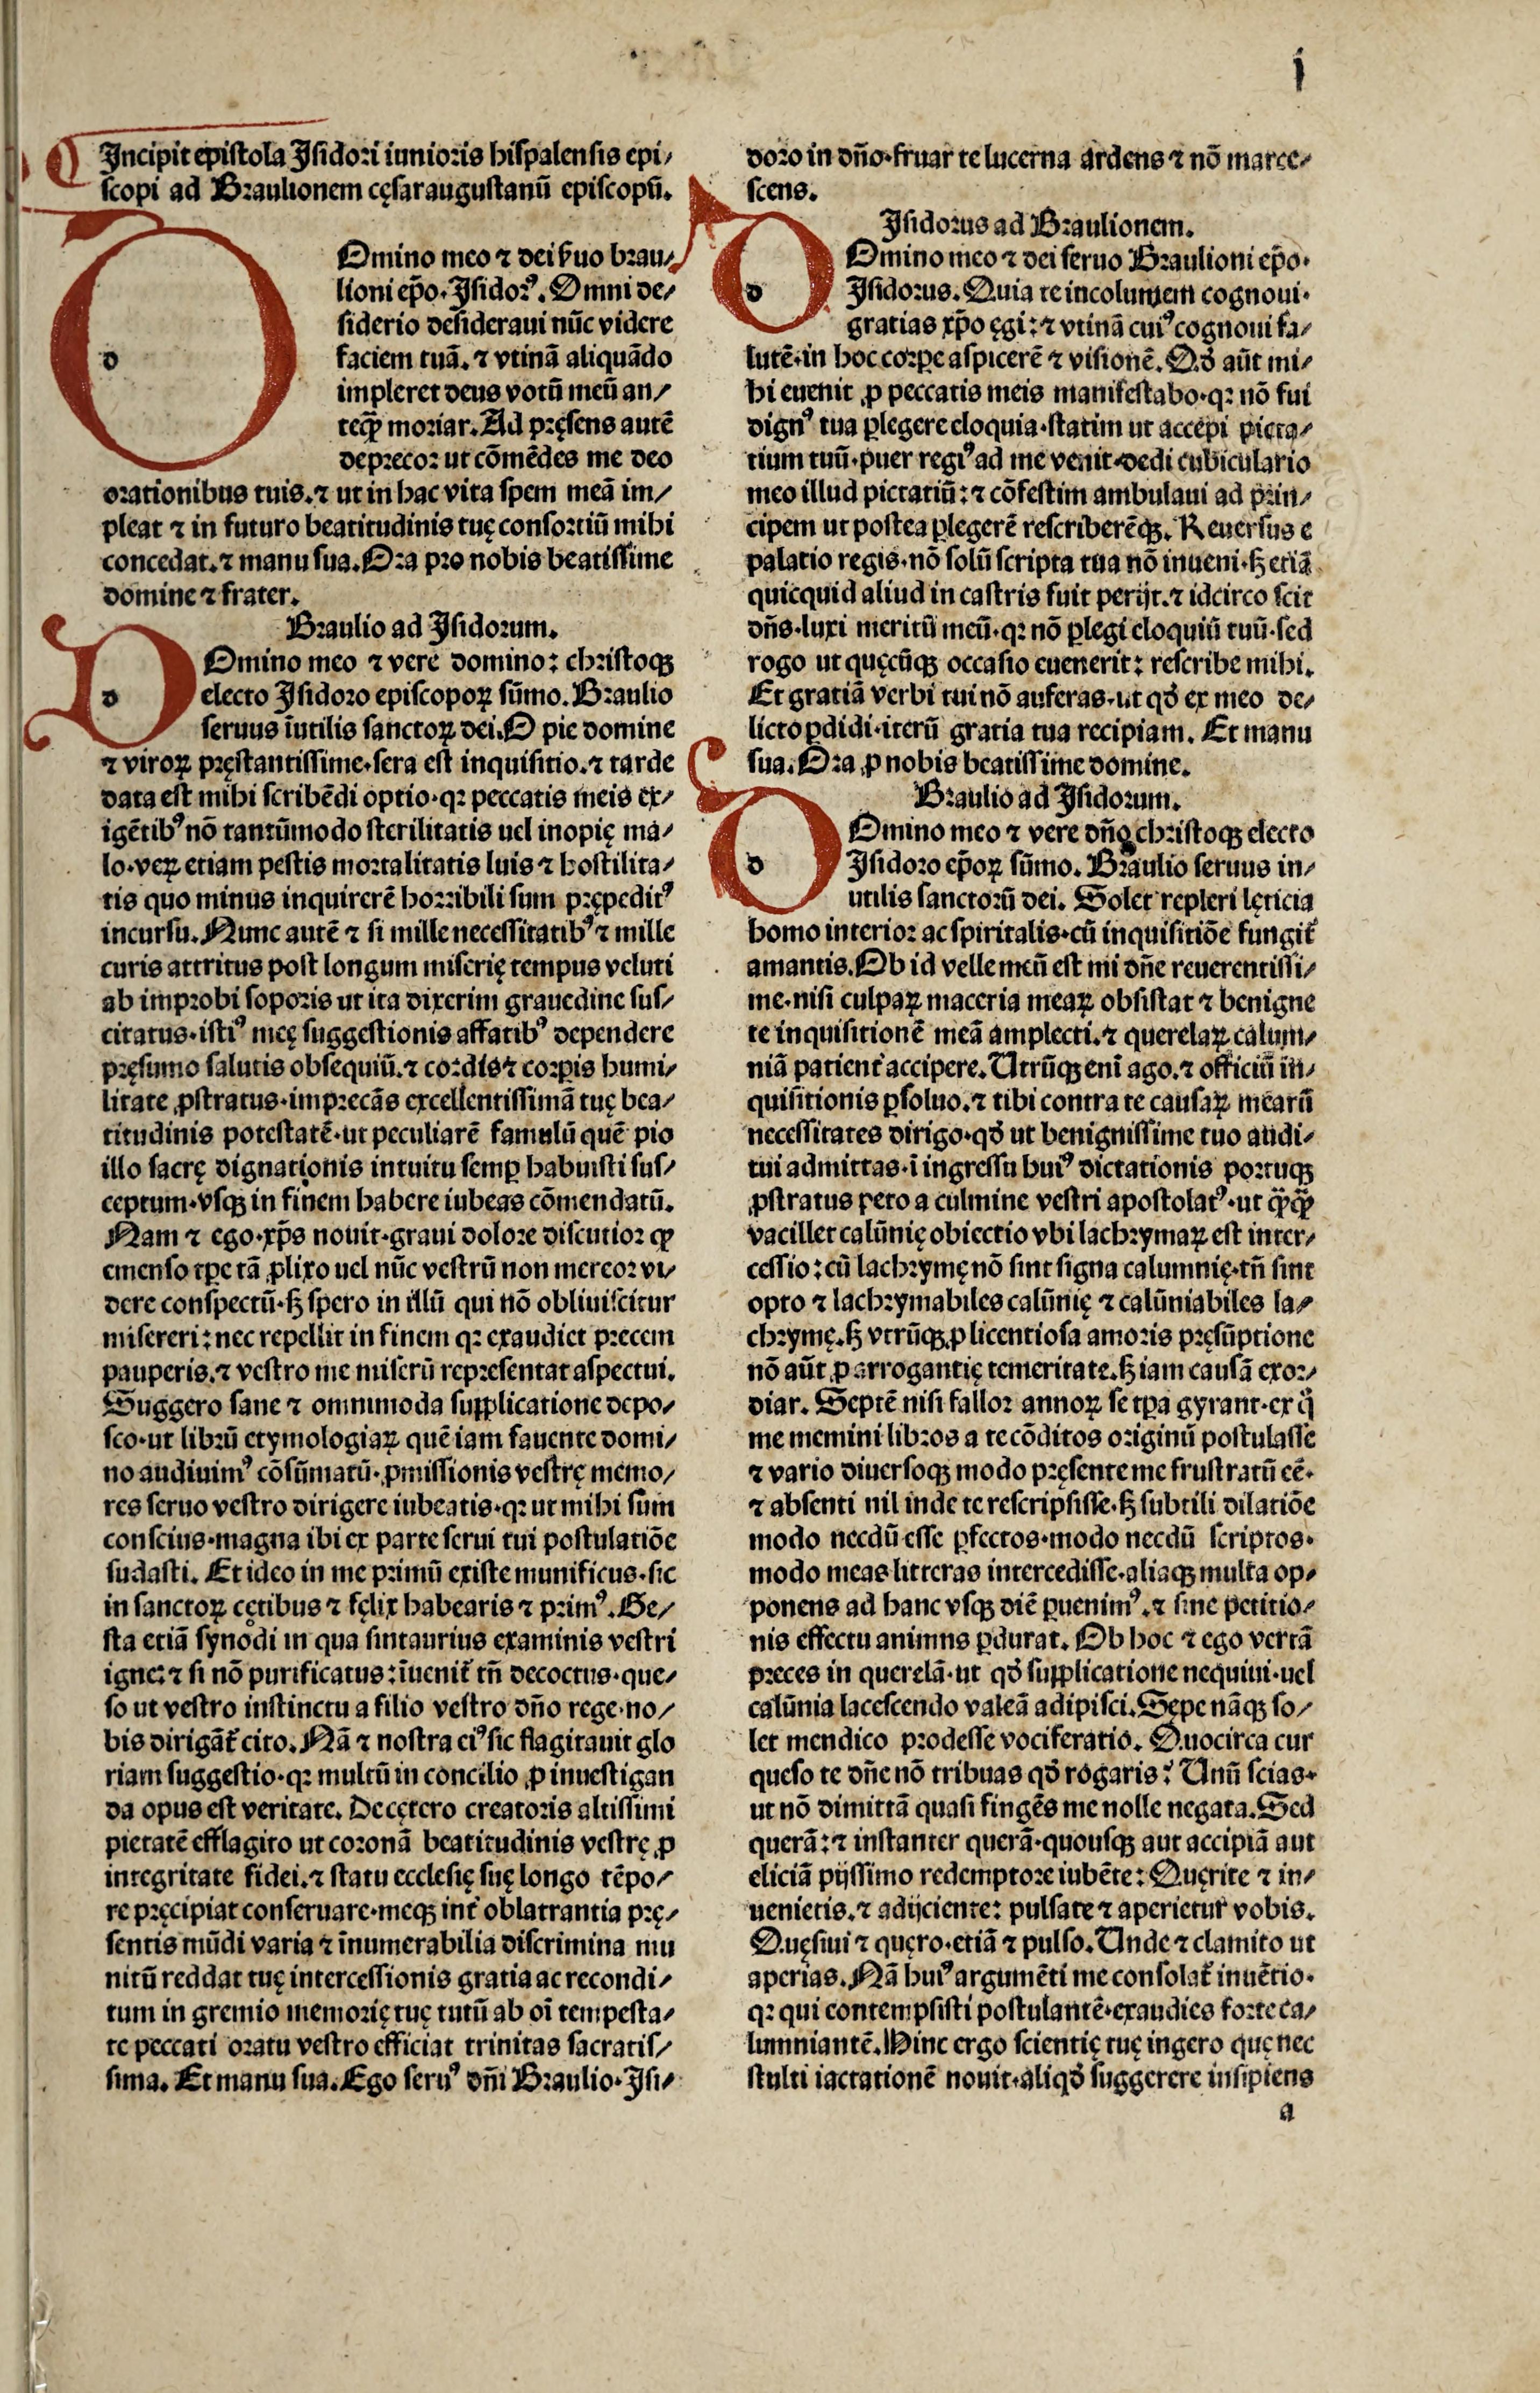 i
Incipit epiſtola Iſidori iunioris hiſpalenſis epi⸗
ſcopi ad Braulionem cęſarauguſtanū epiſcopū.
Omino meo ⁊ dei ẜuo brau⸗
lioni ep̄o. Iſidorꝰ. Omni de⸗
ſiderio deſideraui nūc videre
d
faciem tuā. ⁊ vtinā aliquādo
impleret deus votū meū an⸗
teqꝫ̄ moriar. Ad pręſens autē
deprecor ut cōmēdes me deo
orationibus tuis. ⁊ ut in hac vita ſpem meā im⸗
pleat ⁊ in futuro beatitudinis tuę conſortiū mihi
concedat. ⁊ manu ſua. Ora pro nobis beatiſſime
domine ⁊ frater.
Braulio ad Iſidorum.
Omino meo ⁊ vere domino: chriſtoqꝫ
d
electo Iſidoro epiſcopoꝝ ſūmo. Braulio
ſeruus īutilis ſanctoꝝ dei. O pie domine
⁊ viroꝝ pręſtantiſſime·ſera eſt inquiſitio.⁊ tarde
data eſt mihi ſcribēdi optio·qꝛ peccatis meis ex⸗
igētibꝰ nō tantūmodo ſterilitatis uel inopię ma⸗
lo·veꝝ etiam peſtis mortalitatis luis ⁊ hoſtilita⸗
tis quo minus inquirerē horribili ſum prępeditꝰ
incurſu. Nunc autē ⁊ ſi mille neceſſitatibꝰ ⁊ mille
curis attritus poſt longum miſerię tempus veluti
ab improbi ſoporis ut ita dixerim grauedine ſuſ⸗
citatus·iſtiꝰ meę ſuggeſtionis affatibꝰ dependere
pręſumo ſalutis obſequiū.⁊ cordis ⁊ corꝑis humi⸗
litate ꝓſtratus·imprecās excellentiſſimā tuę bea⸗
titudinis poteſtatē·ut peculiarē famulū quē pio
illo ſacrę dignationis intuitu ſemꝑ habuiſti ſuſ⸗
ceptum·vſqꝫ in finem habere iubeas cōmendatū.
Nam ⁊ ego·xp̄s nouit·graui dolore diſcutior ꝙ
emenſo tꝑe tā ꝓlixo uel nūc veſtrū non mereor vi⸗
dere conſpectū·ſꝫ ſpero in illū qui nō obliuiſcitur
miſereri: nec repellit in finem qꝛ exaudiet precem
pauperis.⁊ veſtro me miſerū repreſentat aſpectui.
Suggero ſane ⁊ omnimoda ſupplicatione depo⸗
ſco·ut librū etymologiaꝝ quē iam fauente domi⸗
no audiuimꝰ cōſūmatū·ꝓmiſſionis veſtrę memo⸗
res ſeruo veſtro dirigere iubeatis·qꝛ ut mihi ſum
conſcius·magna ibi ex parte ſerui tui poſtulatiōe
ſudaſti. Et ideo in me primū exiſte munificus·ſic
in ſanctoꝝ cętibus ⁊ fęlix habearis ⁊ primꝰ. Ge⸗
ſta etiā ſynodi in qua ſintaurius examinis veſtri
igne: ⁊ ſi nō purificatus: īuenit᷑ tn̄ decoctus·que⸗
ſo ut veſtro inſtinctu a filio veſtro dn̄o rege·no⸗
bis dirigāt᷑ cito. Nā ⁊ noſtra eiꝰ ſic flagitauit glo
riam ſuggeſtio·qꝛ multū in concilio ꝓ inueſtigan
da opus eſt veritate. De cętero creatoris altiſſimi
pietatē efflagito ut coronā beatitudinis veſtrę ꝓ
integritate fidei.⁊ ſtatu eccleſię ſuę longo tēpo⸗
re pręcipiat conſeruare·meqꝫ int᷑ oblatrantia prę⸗
ſentis mūdi varia ⁊ īnumerabilia diſcrimina mu
nitū reddat tuę interceſſionis gratia ac recondi⸗
tum in gremio memorię tuę tutū ab oī tempeſta⸗
te peccati oratu veſtro efficiat trinitas ſacratiſ⸗
ſima. Et manu ſua. Ego ſeruꝰ dn̄i Braulio·Iſi⸗
doro in dn̄o·fruar te lucerna ardens ⁊ nō marce⸗
ſcens.
Iſidorus ad Braulionem.
Omino meo ⁊ dei ſeruo Braulioni ep̄o·
d
Iſidorus. Quia te incolumem cognoui·
gratias xp̄o ęgi: ⁊ vtinā cuiꝰ cognoui ſa⸗
lutē·in hoc corꝑe aſpicerē ⁊ viſionē. Qđ aūt mi⸗
hi euenit ꝓ peccatis meis manifeſtabo·qꝛ nō fui
dignꝰ tua ꝑlegere eloquia·ſtatim ut accepi picta⸗
tium tuū·puer regiꝰ ad me venit·dedi cubiculario
meo illud pictatiū: ⁊ cōfeſtim ambulaui ad prin⸗
cipem ut poſtea ꝑlegerē reſcriberēqꝫ. Reuerſus e
palatio regis·nō ſolū ſcripta tua nō inueni·ſꝫ etiā
quicquid aliud in caſtris fuit perijt.⁊ idcirco ſcit
dn̄s·luxi meritū meū·qꝛ nō ꝑlegi eloquiū tuū·ſed
rogo ut quęcūqꝫ occaſio euenerit: reſcribe mihi.
Et gratiā verbi tui nō auferas·ut qđ ex meo de⸗
licto ꝑdidi·iterū gratia tua recipiam. Et manu
ſua. Ora ꝓ nobis beatiſſime domine.
Braulio ad Iſidorum.
Omino meo ⁊ vere dn̄o chriſtoqꝫ electo
d
Iſidoro ep̄oꝝ ſūmo. Braulio ſeruus in⸗
utilis ſanctorū dei. Solet repleri lęticia
homo interior ac ſpiritalis·cū inquiſitiōe fungit᷑
amantis. Ob id velle meū eſt mi dn̄e reuerentiſſi⸗
me·niſi culpaꝝ maceria meaꝝ obſiſtat ⁊ benigne
te inquiſitionē meā amplecti.⁊ querelaꝝ calum⸗
niā patient᷑ accipere. Utrūqꝫ enī ago.⁊ officiū in⸗
quiſitionis ꝑſoluo.⁊ tibi contra te cauſaꝝ mearū
neceſſitates dirigo·qđ ut benigniſſime tuo audi⸗
tui admittas·ī ingreſſu huiꝰ dictationis portuqꝫ
ꝓſtratus peto a culmine veſtri apoſtolatꝰ·ut qꝫ̄qꝫ̄
vacillet calūnię obiectio vbi lachrymaꝝ eſt inter⸗
ceſſio: cū lachrymę nō ſint ſigna calumnię·tn̄ ſint
opto ⁊ lachrymabiles calūnię ⁊ calūniabiles la⸗
chrymę.ſꝫ vtrūqꝫ ꝓ licentioſa amoris pręſūptione
nō aūt ꝓ arrogantię temeritate.ſꝫ iam cauſā exor⸗
diar. Septē niſi fallor annoꝝ ſe tꝑa gyrant·ex qͦ
me memini libros a te cōditos originū poſtulaſſe
⁊ vario diuerſoqꝫ modo pręſente me fruſtratū eē·
⁊ abſenti nil inde te reſcripſiſſe·ſꝫ ſubtili dilatiōe
modo necdū eſſe ꝑfectos·modo necdū ſcriptos·
modo meas litteras intercediſſe·aliaqꝫ multa op⸗
ponens ad hanc vſqꝫ diē ꝑuenimꝰ.⁊ ſine petitio⸗
nis effectu animus ꝑdurat. Ob hoc ⁊ ego vertā
preces in querelā·ut qđ ſupplicatione nequiui·uel
calūnia laceſcendo valeā adipiſci. Sępe nāqꝫ ſo⸗
let mendico prodeſſe vociferatio. Quocirca cur
queſo te dn̄e nō tribuas qđ rogaris? Unū ſcias·
ut nō dimittā quaſi fingēs me nolle negata. Sed
querā: ⁊ inſtanter querā·quouſqꝫ aut accipiā aut
eliciā pijſſimo redemptore iubēte: Quęrite ⁊ in⸗
uenietis.⁊ adijciente: pulſate ⁊ aperietur vobis.
Quęſiui ⁊ quęro·etiā ⁊ pulſo. Unde ⁊ clamito ut
aperias. Nā huiꝰ argumēti me conſolat᷑ inuētio·
qꝛ qui contempſiſti poſtulantē·exaudies forte ca⸗
lumniantē. Hinc ergo ſcientię tuę ingero quę nec
ſtulti iactationē nouit·aliqđ ſuggerere inſipiens
a